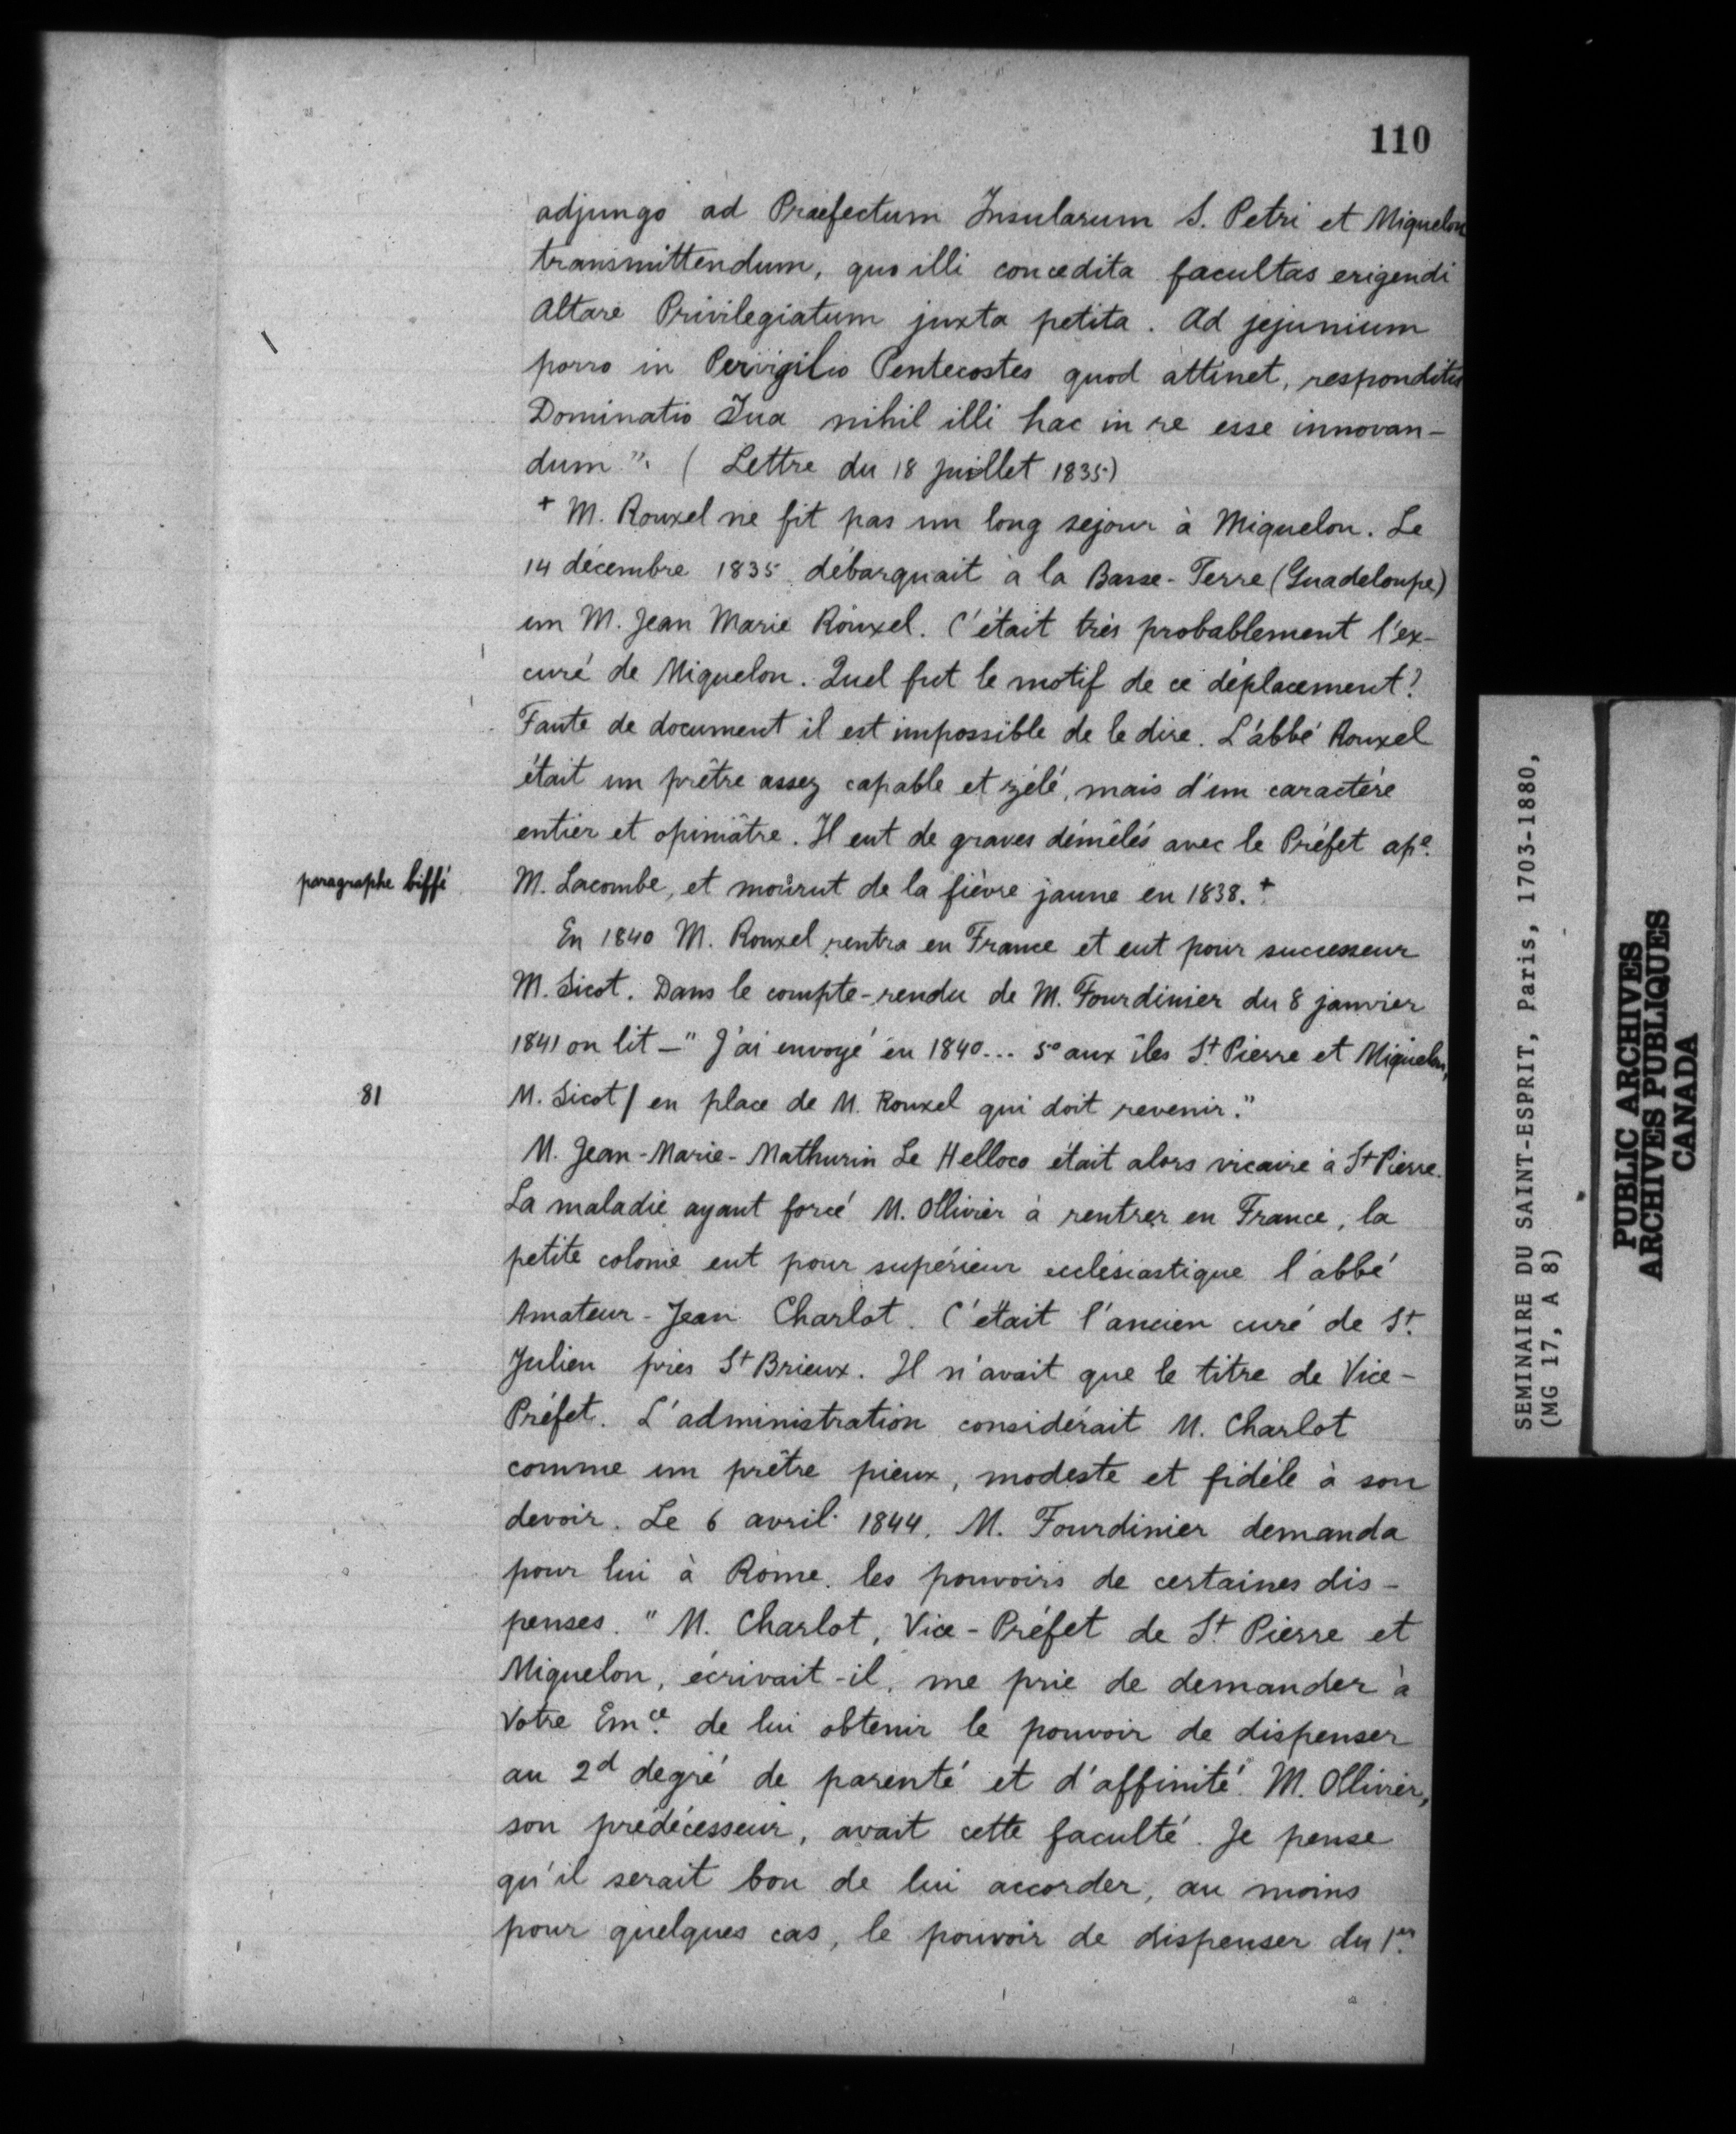 110
adjungo ad Praefectum Insularum S. Petri et Miquelon
transmittendum, quo illi concedita facultas erigendi
Altare Privilegiatum juxta petita. Ad jejunium
porro in Pervigilio Pentecostes quod attinet, responditis
Dominatio Tua nihil illi hac in re esse innovan-
dum". (Lettre du 18 juillet 1835)
+ M. Rouxel ne fit pas un long sejour à Miquelon. Le
14 décembre 1835 débarquait à la Basse-Terre (Guadeloupe)
un M. Jean Marie Rouxel. C'était très probablement l'ex-
curé de Miquelon. Quel fut le motif de ce déplacement?
Faute de document il est impossible de le dire. L'abbé Rouxel
était un prêtre assez capable et zélé, mais d'un caractère
entier et opiniâtre. Il eut de graves démêlés avec le Préfet ape.
paragraphe biffé
M. Lacombe, et mourut de la fièvre jaune en 1838. +
En 1840 M. Rouxel rentra en France et eut pour successeur
M. Sicot. Dans le compte-rendu de M. Fourdinier du 8 janvier
1841 on lit - " J'ai envoyé en 1840... 5° aux îles St. Pierre et Miquelon,
81
M. Sicot / en place de M. Rouxel qui doit revenir."
M. Jean-Marie-Mathurin Le Helloco était alors vicaire à St Pierre.
La maladie ayant forcé M. Ollivier à rentrer en France, la
petite colonie eut pour supérieur ecclésiastique l'abbé
Amateur-Jean Charlot. C'était l'ancien curé de St.
Julien près St Brieux. Il n'avait que le titre de Vice-
Préfet. L'administration considérait M. Charlot
comme un prêtre pieux, modeste et fidèle à son
devoir. Le 6 avril 1844. M. Fourdinier demanda
pour lui à Rome les pouvoirs de certaines dis-
penses. " M. Charlot, Vice-Préfet de St. Pierre et
Miquelon, écrivait-il, me prie de demander à
Votre Emce. de lui obtenir le pouvoir de dispenser
au 2d degré de parenté et d'affinité. M. Ollivier,
son prédécesseur, avait cette faculté. Je pense
qu'il serait bon de lui accorder, au moins
pour quelques cas, le pouvoir de dispenser du 1er
SEMINAIRE DU SAINT-ESPRIT, Paris, 1703-1880,
(MG 17, A 8)
PUBLIC ARCHIVES
ARCHIVES PUBLIQUES
CANADA